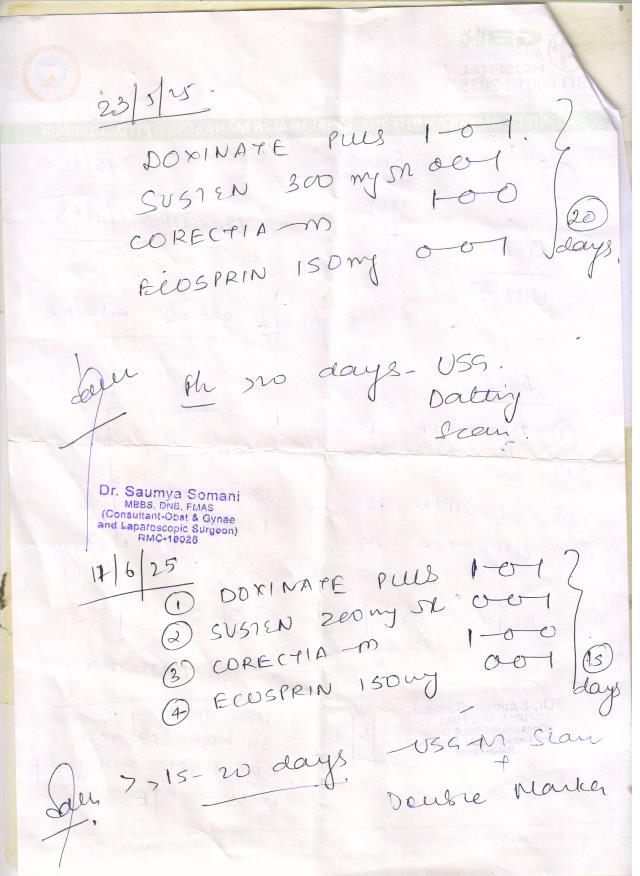 23/5/25.
DOXINATE PLUS 1-0-1.
SUSTEN 300 mg SR 0-0-1
CORECTIA-M 1-0-0
ECOSPRIN 150mg 0-0-1
20 days.
20 days - USG.
Datting
Scan.
Dr. Saumya Somani
MBBS, DNB, FMAS
(Consultant-Obst & Gynae
and Laparoscopic Surgeon)
RMC-18026
11/6/25
① DOXINATE PLUS 1-0-1
② SUSTEN 200mg SR 0-0-1
③ CORECTIA-M 1-0-0
④ ECOSPRIN 150mg 0-0-1
15 days
>>15-20 days. - USG Scan
+
Double Marker